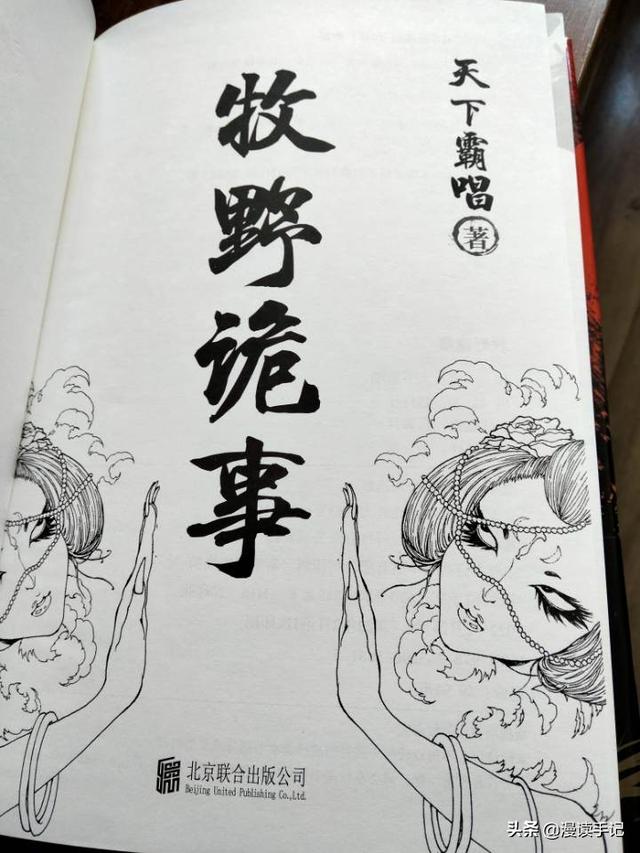 天下霸唱著
牧野诡事
北京联合出版公司
Beijing United Publishing Co.,Ltd.
头条 @漫读手记